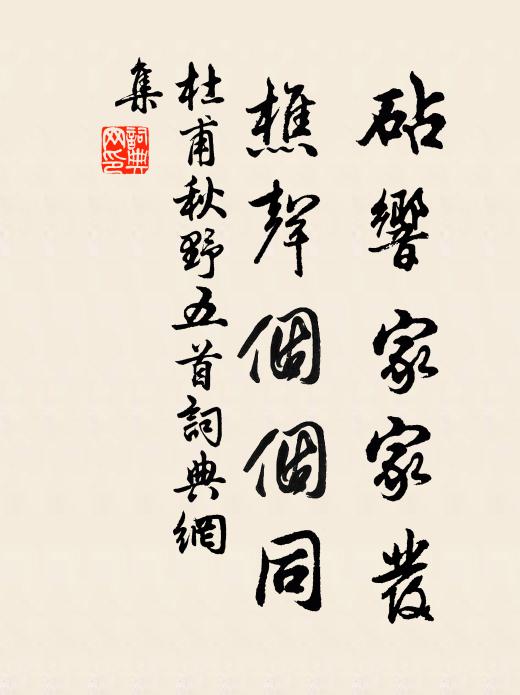 砧響家家發
樵聲個個同
杜甫秋野五首詞典網
集
詞典
网印